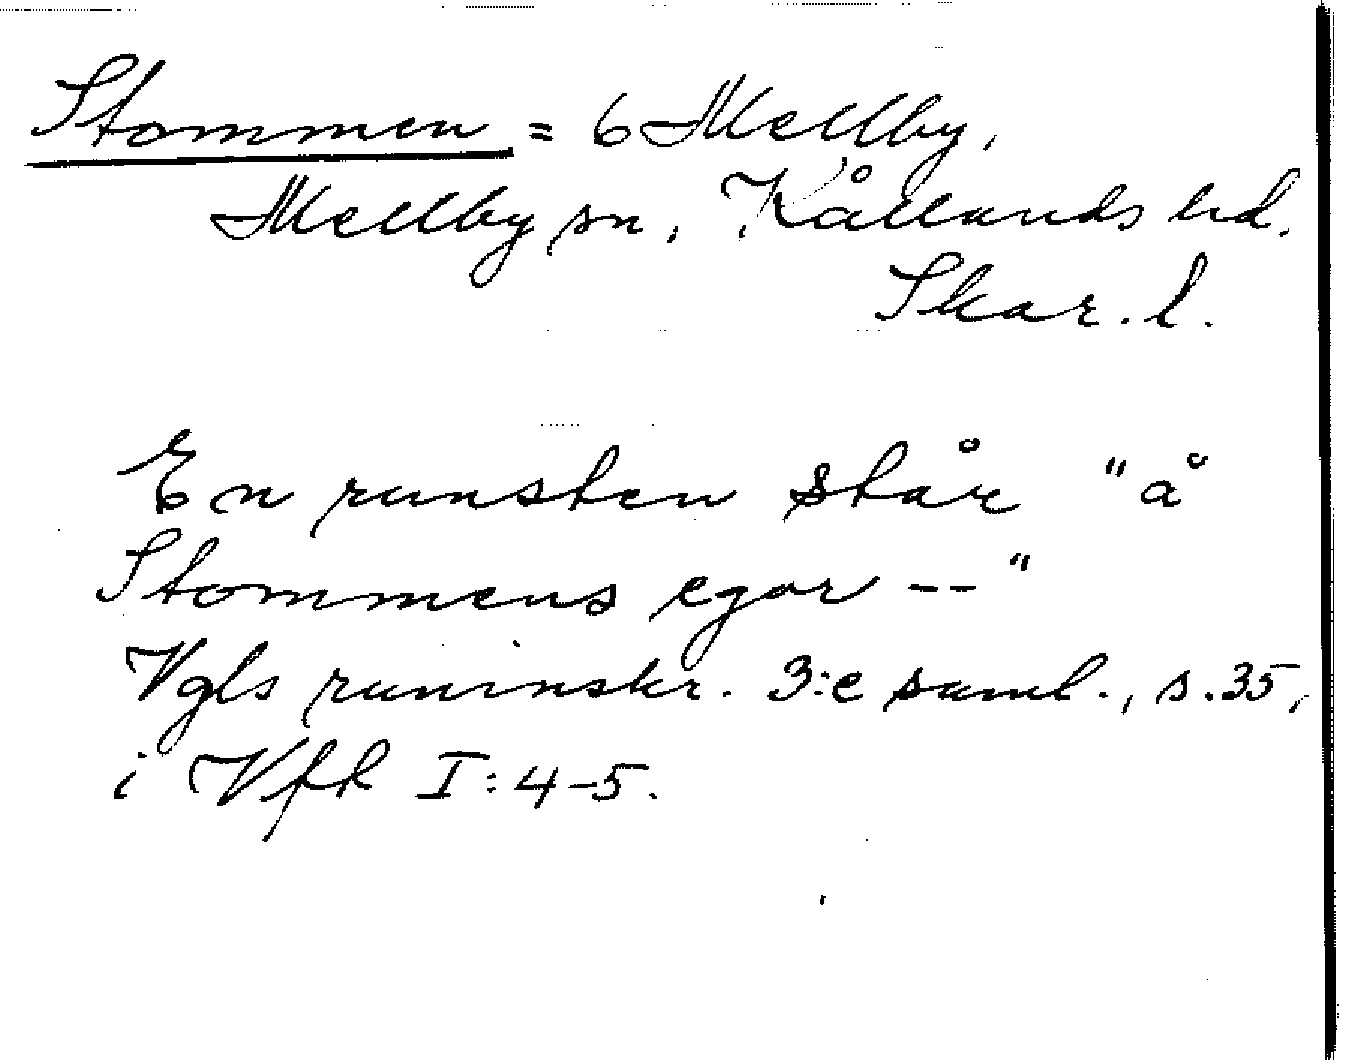 Stommen = 6 Mellby,
Mellby sn, Kållands hd.
Skar. l.
En runsten står "å
Stommens egor --"
Vgls runinskr. 3:e saml., s. 35,
i Vfk I:4-5.